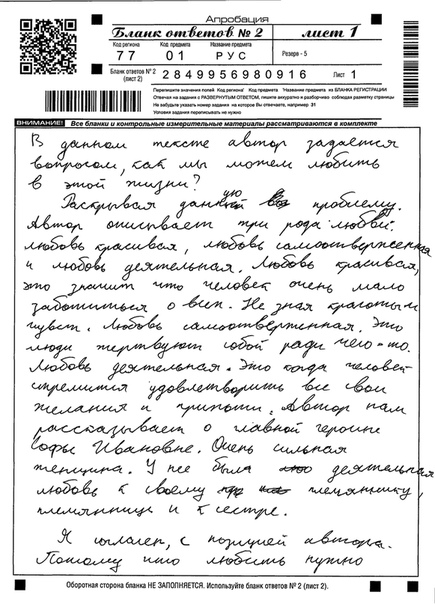 Апробация
Бланк ответов № 2 лист 1
Код региона Код предмета Название предмета
77 01 РУС Резерв - 5
Бланк ответов № 2 (лист 2) 2849956980916 Лист 1
Перепишите значения полей "Код региона", "Код предмета", "Название предмета" из БЛАНКА РЕГИСТРАЦИИ
Отвечая на задания с РАЗВЕРНУТЫМ ОТВЕТОМ, пишите аккуратно и разборчиво, соблюдая разметку страницы
Не забудьте указать номер задания, на которое Вы отвечаете, например 31
Условия задания переписывать не нужно
ВНИМАНИЕ! Все бланки и контрольные измерительные материалы рассматриваются в комплекте
В данном тексте автор задается
вопросом, как мы можем любить
в этой жизни?
Раскрывая данную проблему.
Автор описывает три рода любви.
любовь красивая, любовь самоотверженная
и любовь деятельная. Любовь красивая,
это значит что человек очень мало
заботиться о всем. Не зная красоты
чувст. Любовь самоотверженная. Это
люди жертвуют собой ради чего-то.
Любовь деятельная. Это когда человек
стремится удовлетворить все свои
желания и прихоти. Автор нам
рассказывает о главной героине
Софье Ивановне. Очень сильная
женщина. У нее была деятельная
любовь к своему племяннику,
племяннице и к сестре.
Я согласен, с позицией автора.
Потому что любить нужно
Оборотная сторона бланка НЕ ЗАПОЛНЯЕТСЯ. Используйте бланк ответов № 2 (лист 2).